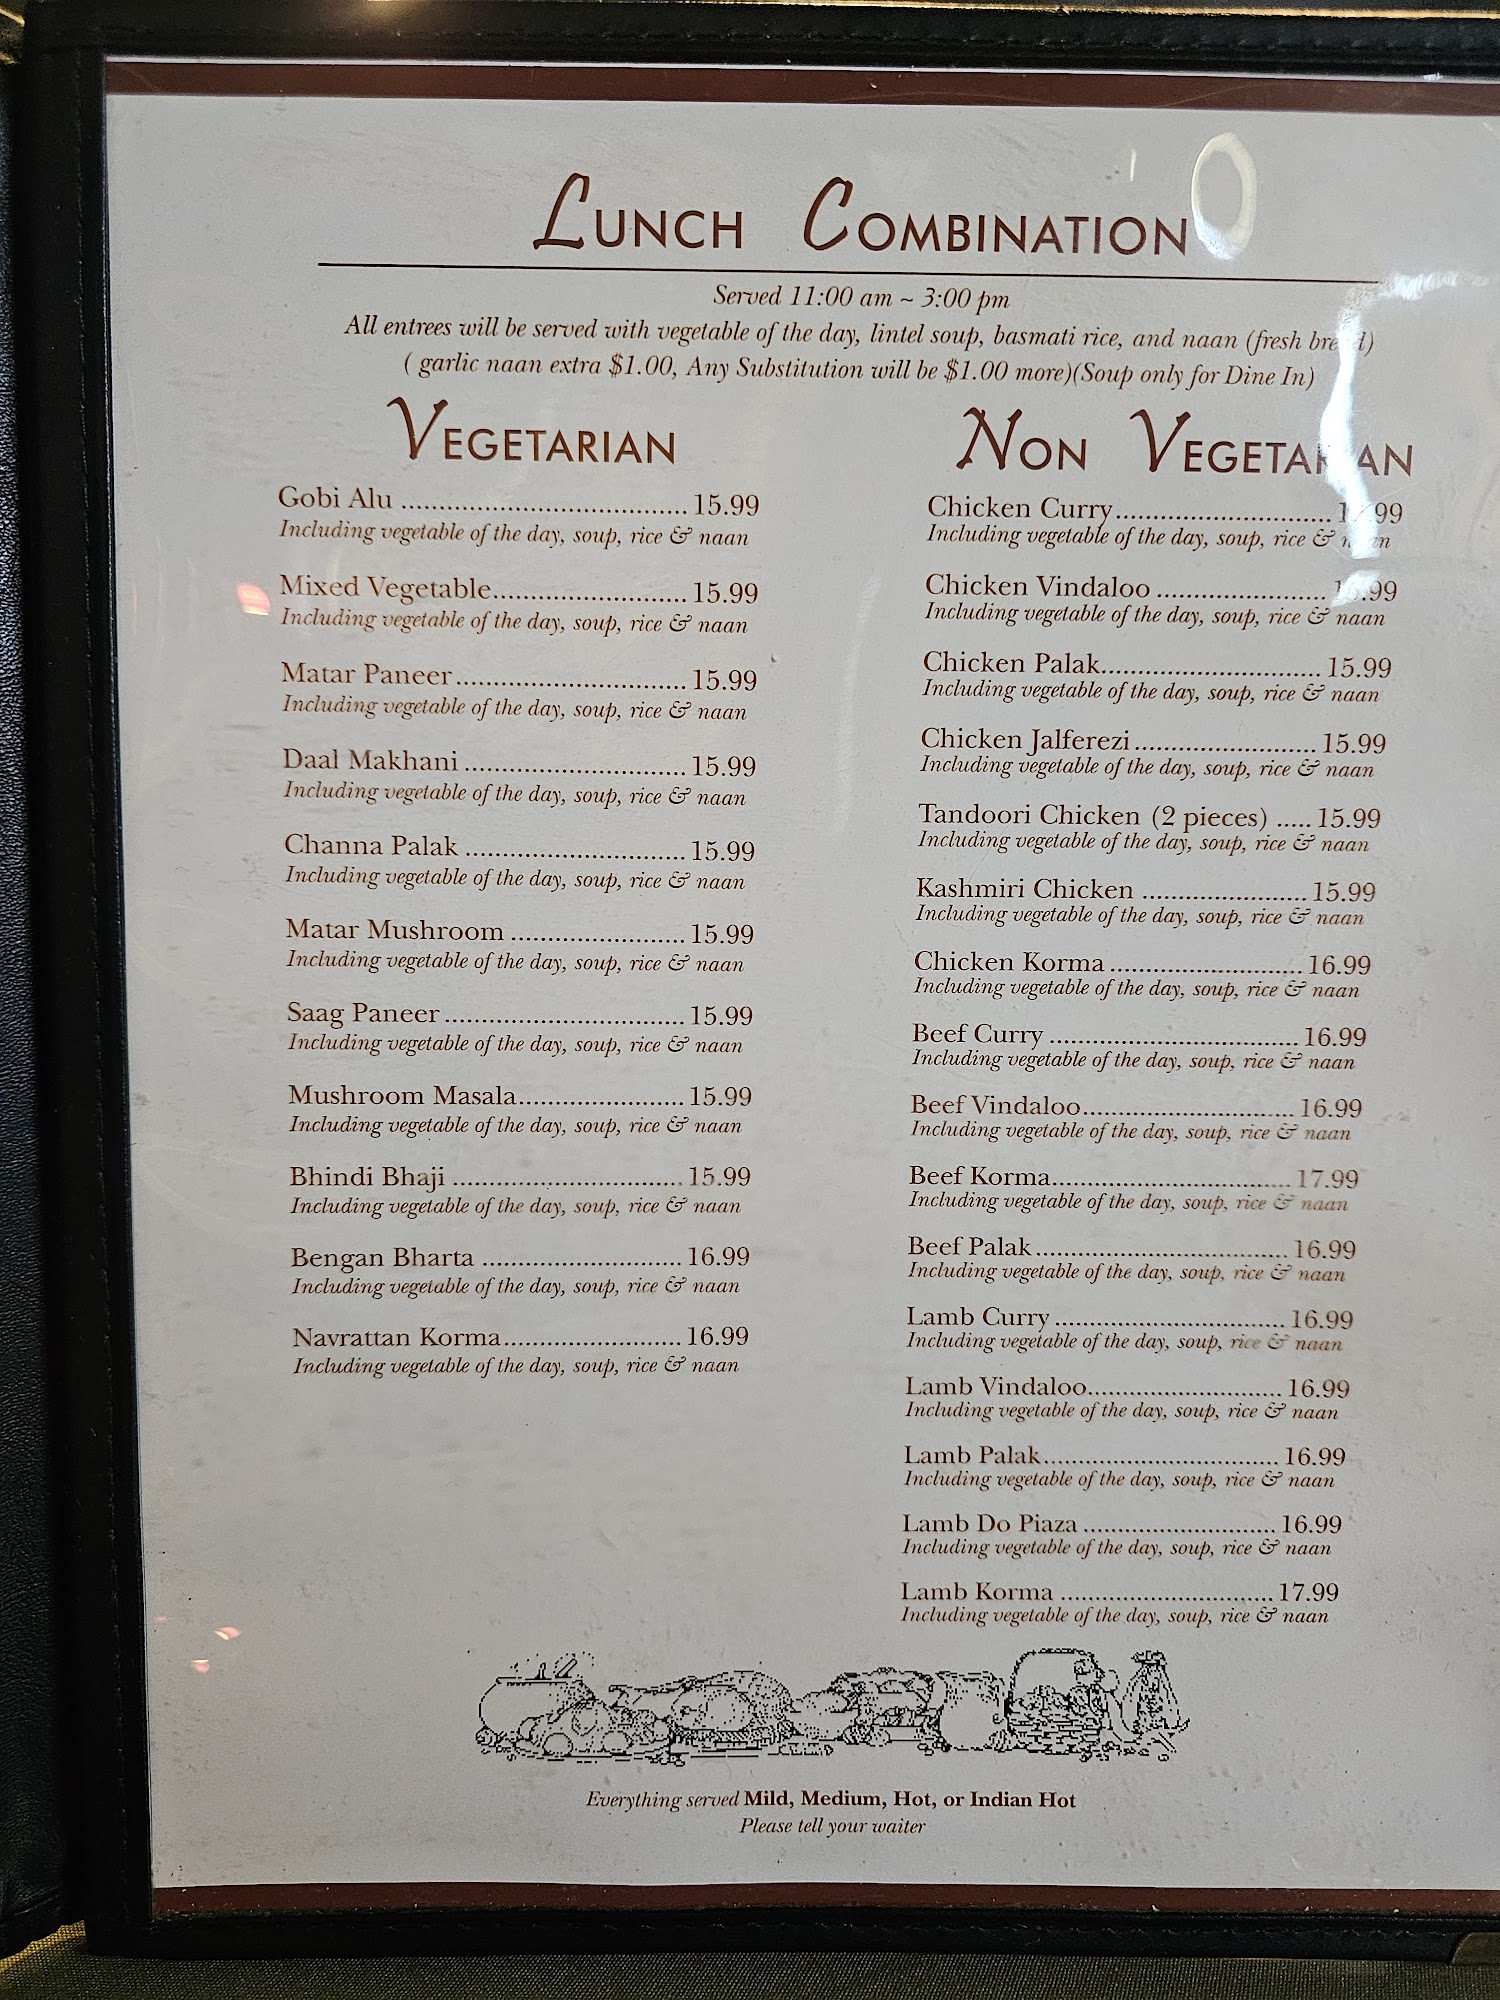 Lunch Combination
Served 11:00 am ~ 3:00 pm
All entrees will be served with vegetable of the day, lintel soup, basmati rice, and naan (fresh bread)
( garlic naan extra $1.00, Any Substitution will be $1.00 more)(Soup only for Dine In)
Vegetarian
Gobi Alu ........................................ 15.99
Including vegetable of the day, soup, rice & naan
Mixed Vegetable........................... 15.99
Including vegetable of the day, soup, rice & naan
Matar Paneer................................ 15.99
Including vegetable of the day, soup, rice & naan
Daal Makhani ............................... 15.99
Including vegetable of the day, soup, rice & naan
Channa Palak ............................... 15.99
Including vegetable of the day, soup, rice & naan
Matar Mushroom ........................ 15.99
Including vegetable of the day, soup, rice & naan
Saag Paneer.................................. 15.99
Including vegetable of the day, soup, rice & naan
Mushroom Masala....................... 15.99
Including vegetable of the day, soup, rice & naan
Bhindi Bhaji ................................ 15.99
Including vegetable of the day, soup, rice & naan
Bengan Bharta ............................ 16.99
Including vegetable of the day, soup, rice & naan
Navrattan Korma......................... 16.99
Including vegetable of the day, soup, rice & naan
Non Vegetarian
Chicken Curry..............................
Including vegetable of the day, soup, rice & naan
Chicken Vindaloo ........................
Including vegetable of the day, soup, rice & naan
Chicken Palak............................... 15.99
Including vegetable of the day, soup, rice & naan
Chicken Jalferezi.......................... 15.99
Including vegetable of the day, soup, rice & naan
Tandoori Chicken (2 pieces) ..... 15.99
Including vegetable of the day, soup, rice & naan
Kashmiri Chicken ........................ 15.99
Including vegetable of the day, soup, rice & naan
Chicken Korma ............................ 16.99
Including vegetable of the day, soup, rice & naan
Beef Curry .................................... 16.99
Including vegetable of the day, soup, rice & naan
Beef Vindaloo............................... 16.99
Including vegetable of the day, soup, rice & naan
Beef Korma................................... 17.99
Including vegetable of the day, soup, rice & naan
Beef Palak..................................... 16.99
Including vegetable of the day, soup, rice & naan
Lamb Curry .................................. 16.99
Including vegetable of the day, soup, rice & naan
Lamb Vindaloo............................. 16.99
Including vegetable of the day, soup, rice & naan
Lamb Palak................................... 16.99
Including vegetable of the day, soup, rice & naan
Lamb Do Piaza ............................ 16.99
Including vegetable of the day, soup, rice & naan
Lamb Korma ................................ 17.99
Including vegetable of the day, soup, rice & naan
Everything served Mild, Medium, Hot, or Indian Hot
Please tell your waiter